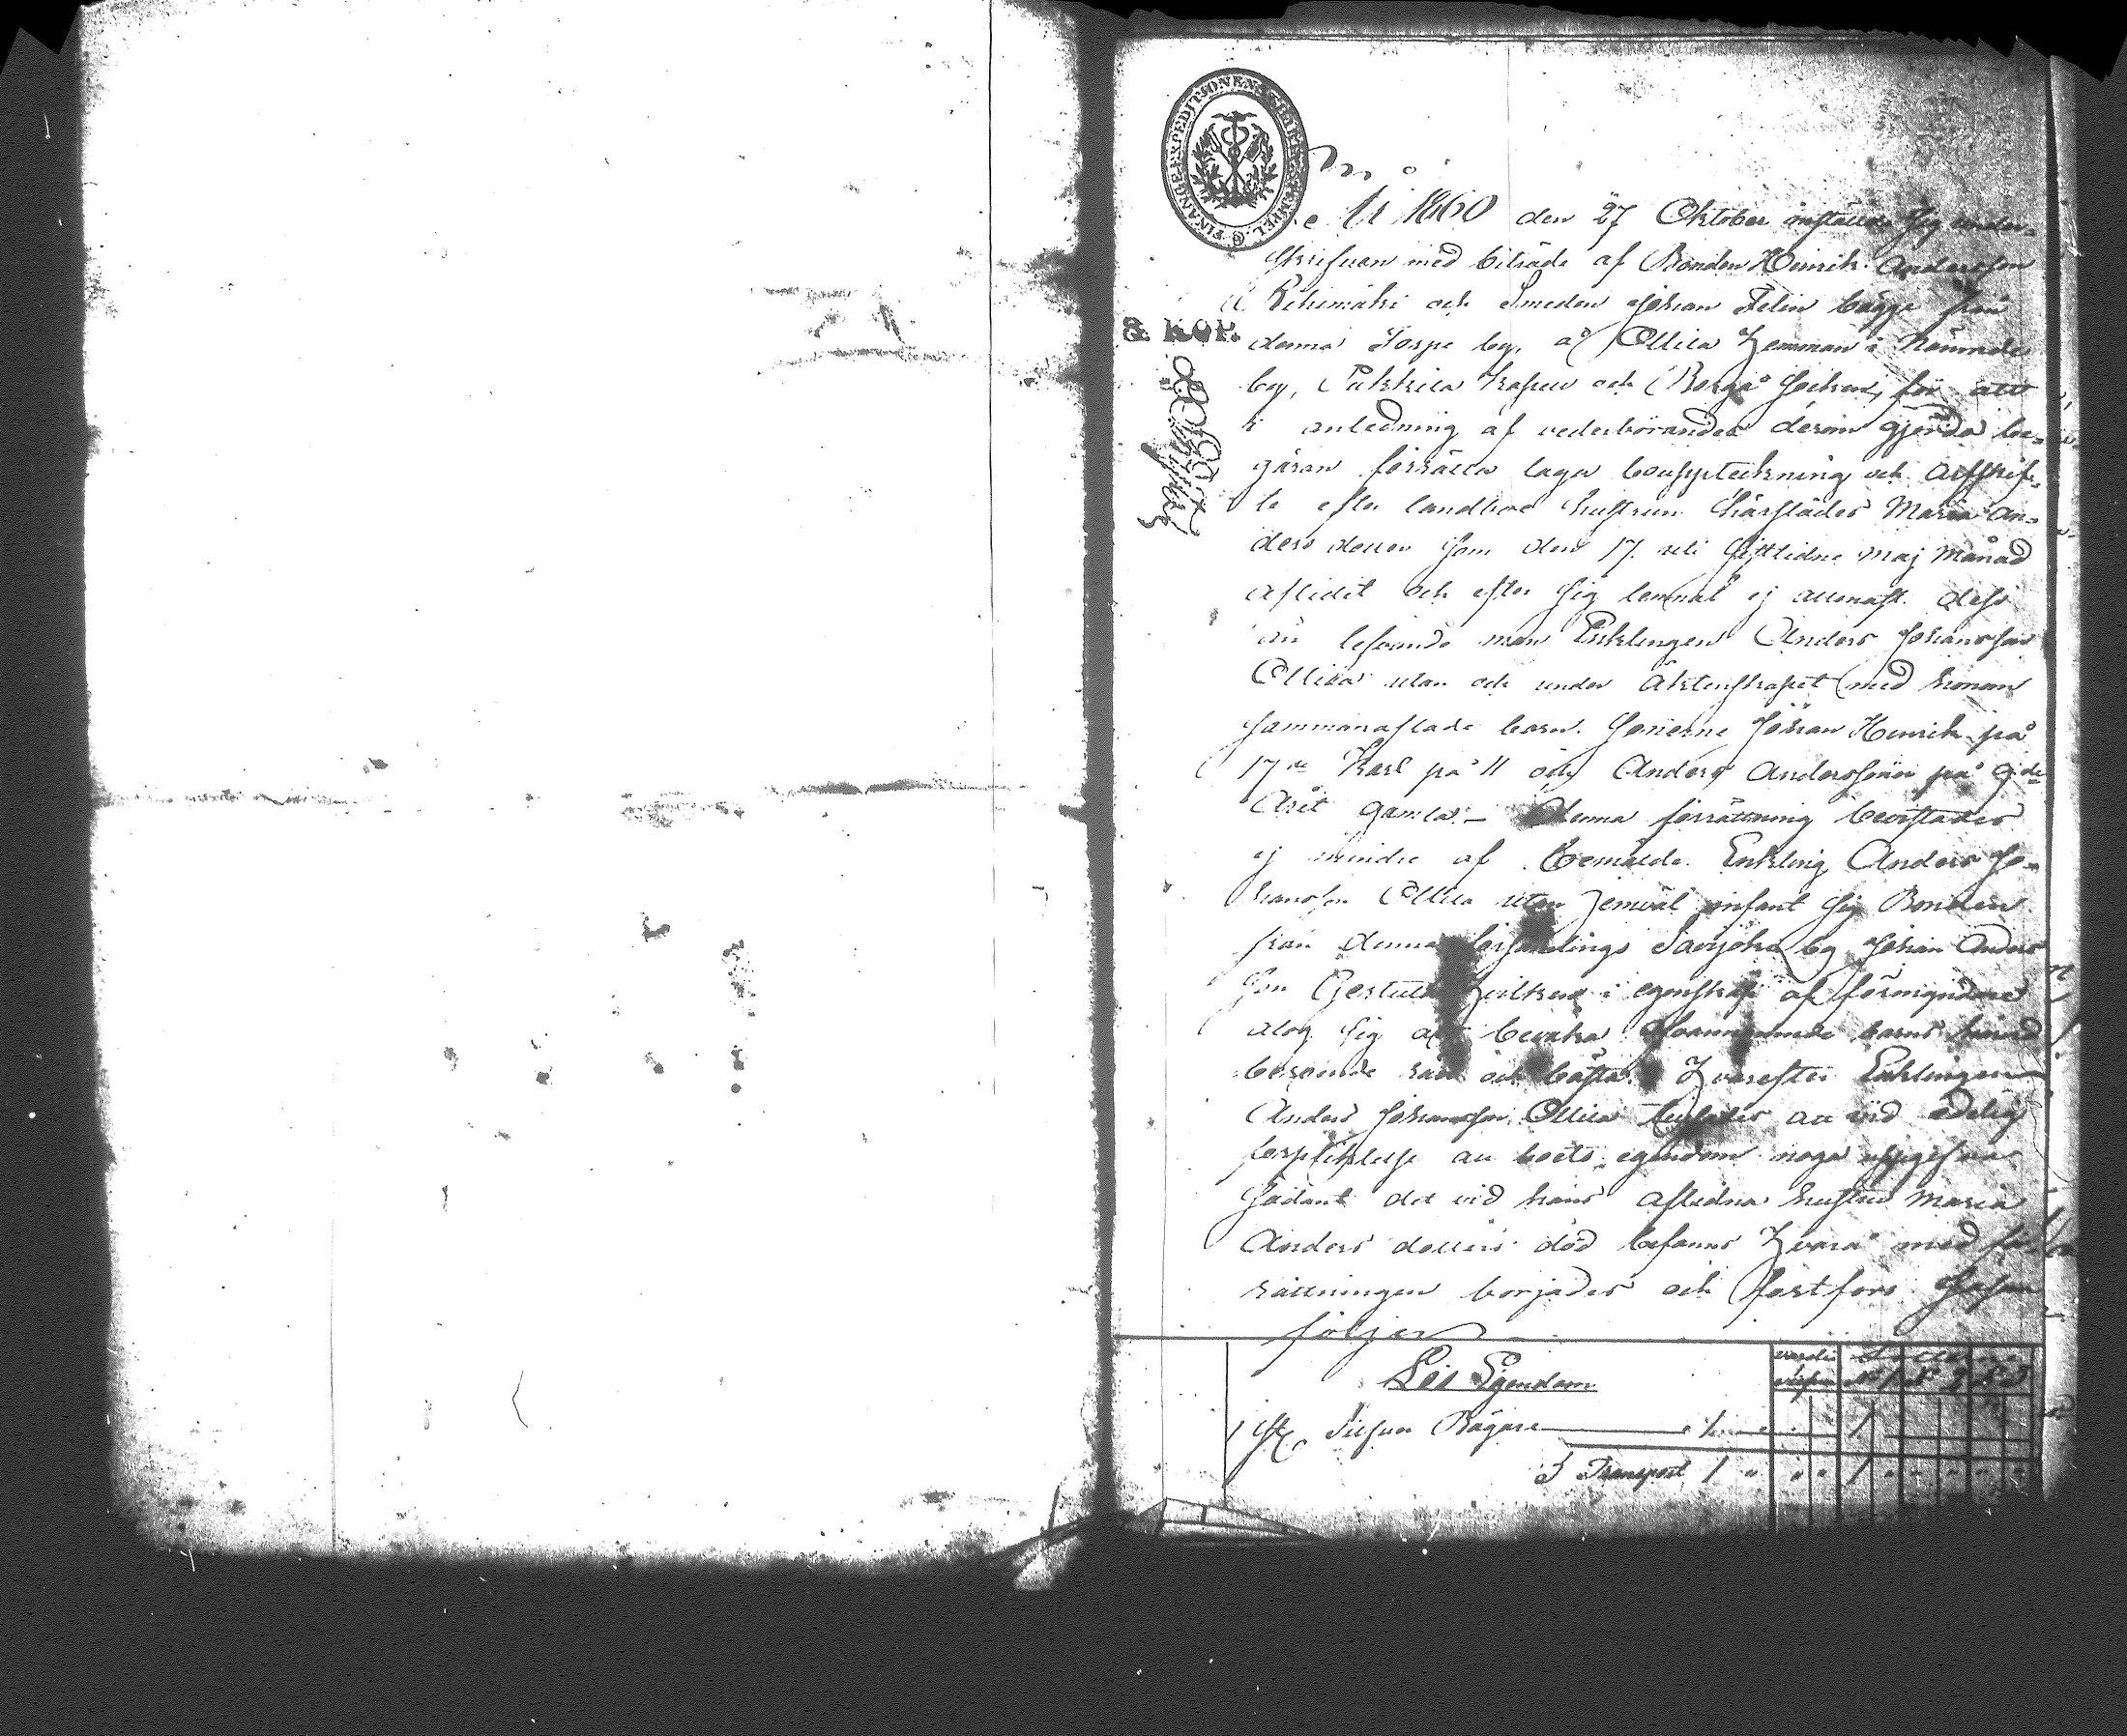 FINANCE EXPEDITIONEN
8 KOP.
År 1860 den 27 Oktober instälde sig under-
skrifven med biträde af Bonden Henrik Andersson
Rihimäki och Smeden Johan Felin bägge från
denna Torpe by, å Ollila Hemman i nämnde
by, Pukkila kapell och Borgå Socken, för att
i anledning af vederbörandes derom gjorda be-
gäran förrätta laga bouppteckning och arfskif-
te efter landboe hustrun härstädes Maria An-
ders dotter som den 17 uti sistlidne Maj Månad
aflidit och efter sig lemnat ej allenast dess
nu lefvande man Enklingen Anders Johansson
Ollila utan och under Äktenskapet med honom
sammanaflade barn. Sönerne Johan Henrik på
17de Karl på 11 och Anders Anderssöner på 9de
Året gamla. — Denna förrättning bevistades
ej mindre af bemälde Enkling Anders Jo-
hansson Ollila utan jemväl infant sig Bonden
från denna försa­mlings Savijoki by Johan Anders
son hvilken i egenskap af förmyndare
alog sig att bevaka ofvannämnde barns
beroende rätt och bästa. Hvarefter Enklingen
Anders Johansson Ollila att vid edelig
förpliktelse all boets egendom noga uppgifva
Sådant det vid hans aflidna hustru Maria
Anders dotters död befanns Hvarå med för-
rättningen börjades och fortfors Som
följer
Lös Egendom
1 st. Silfver Bägare 1 1
Transport 1 " " " 1 " " " " "